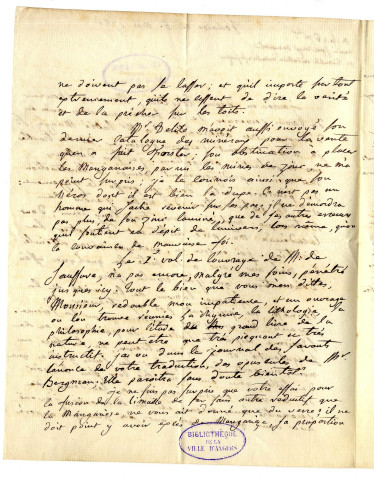 ne doivent pas se lasser; et qu'il importe sur tout
extremement, qu'ils ne cessent de dire la vérité
et de la précher sur les toits.
Mr. Delile m'avoit aussi envoyé son
dernier Catalogue des mineraux pour la vente
qu'en a fait son obstination a placer
les Manganaises parmi les mines de fer ne me
surpris, je le connois ainsi que son
héros dont il est bien la dupe. Ce n'est pas un
homme que fasse revenir sur ses pas; il ne demordra
pas plus de son que de ses autres erreurs
qu'il soutient en dépit de l'univers,
la de mauvaise foi.
Le 2e vol de l'ouvrage de Mr. de
Saussure, n'a pas encore, malgré mes soins, pénétré
jusques icy. Tout le bien que vous m'en dittes,
Monsieur, redouble mon impatience, et un ouvrage
ou l'on trouve réunies la chymie, la lithologie, la
philosophie, pour l'étude du grand livre de la
nature, ne peut etre que tres piquant et très
instructif. j'ai vu dans le journal des savants
l'annonce de votre traduction des opuscules de Mr
Bergman; Elle paroitra sans doute bientot.
je ne suis pas surpris que votre essai pour
la fusion de la limaille de fer sans autre reductif que
la Manganese, ne vous ait donné que du verre; il ne
doit point y avoir après de Manganèse la proportion
BIBLIOTHEQUE
DE LA
VILLE D'ANGERS